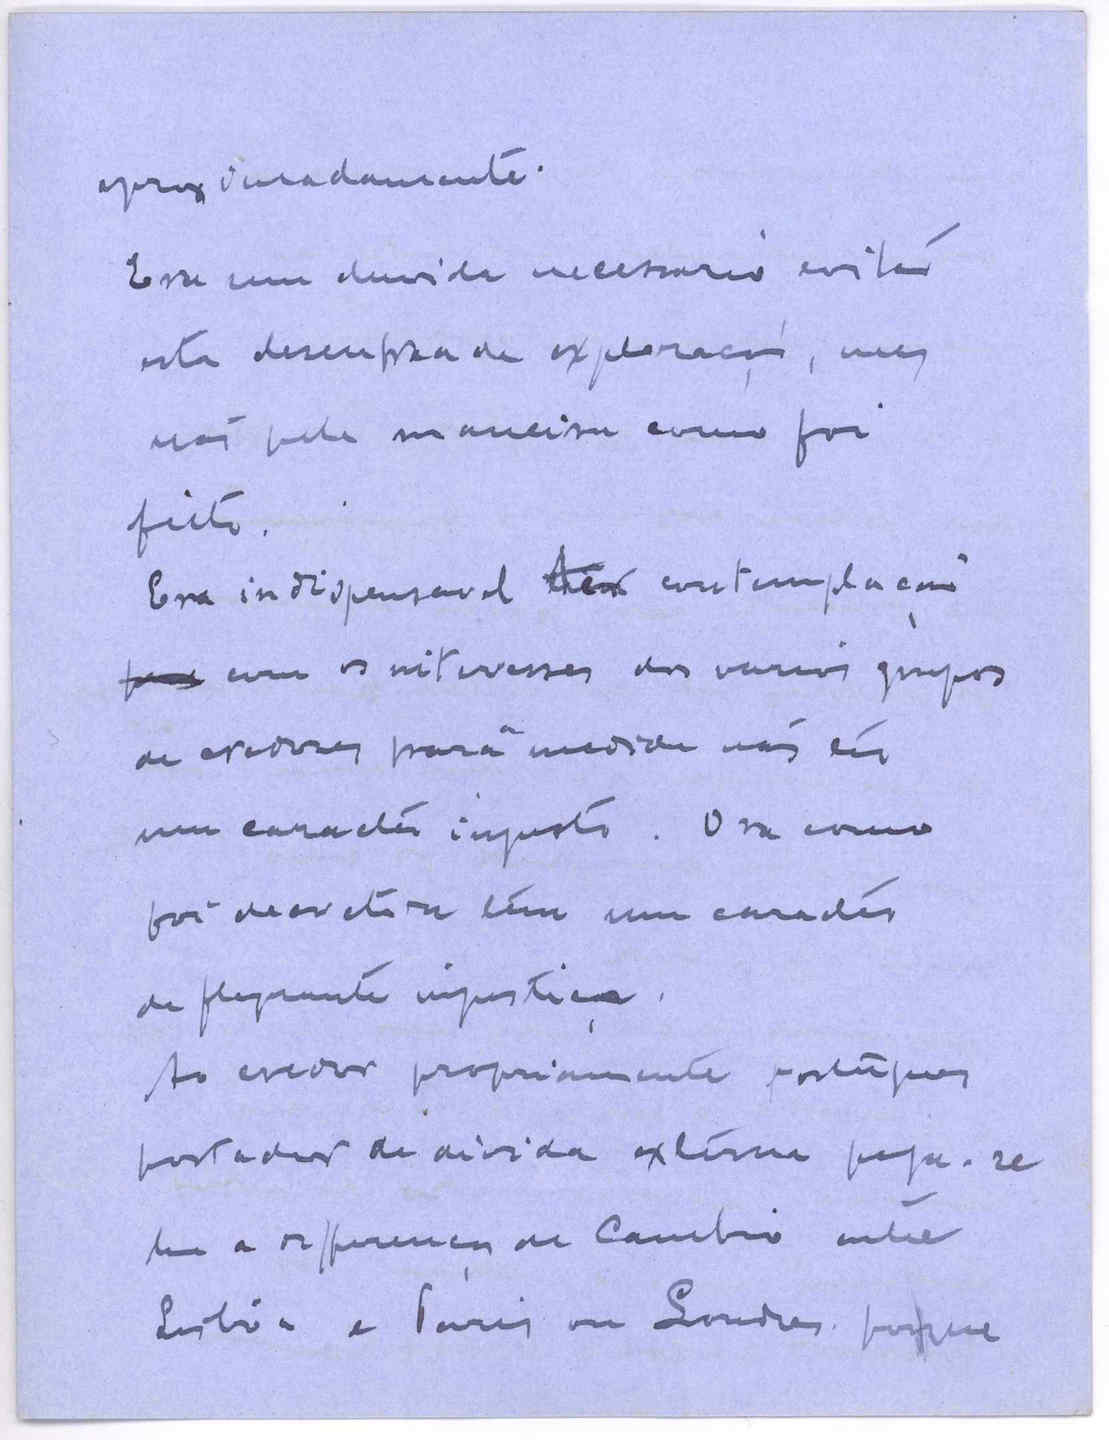 aproximadamente.
Era sem duvida necessario evitar
esta desenfreada exploração, mas
não pela maneira como foi
feito.
Era indispensavel ter contemplação
com os interesses dos varios grupos
de credores para a medida não ter
um caracter injusto. Ora como
foi decretada tem um caracter
de flagrante injustiça.
Ao credor propriamente portuguez
portador de divida externa paga-se
lhe a differença de Cambio entre
Lisbôa e Paris ou Londres. porque